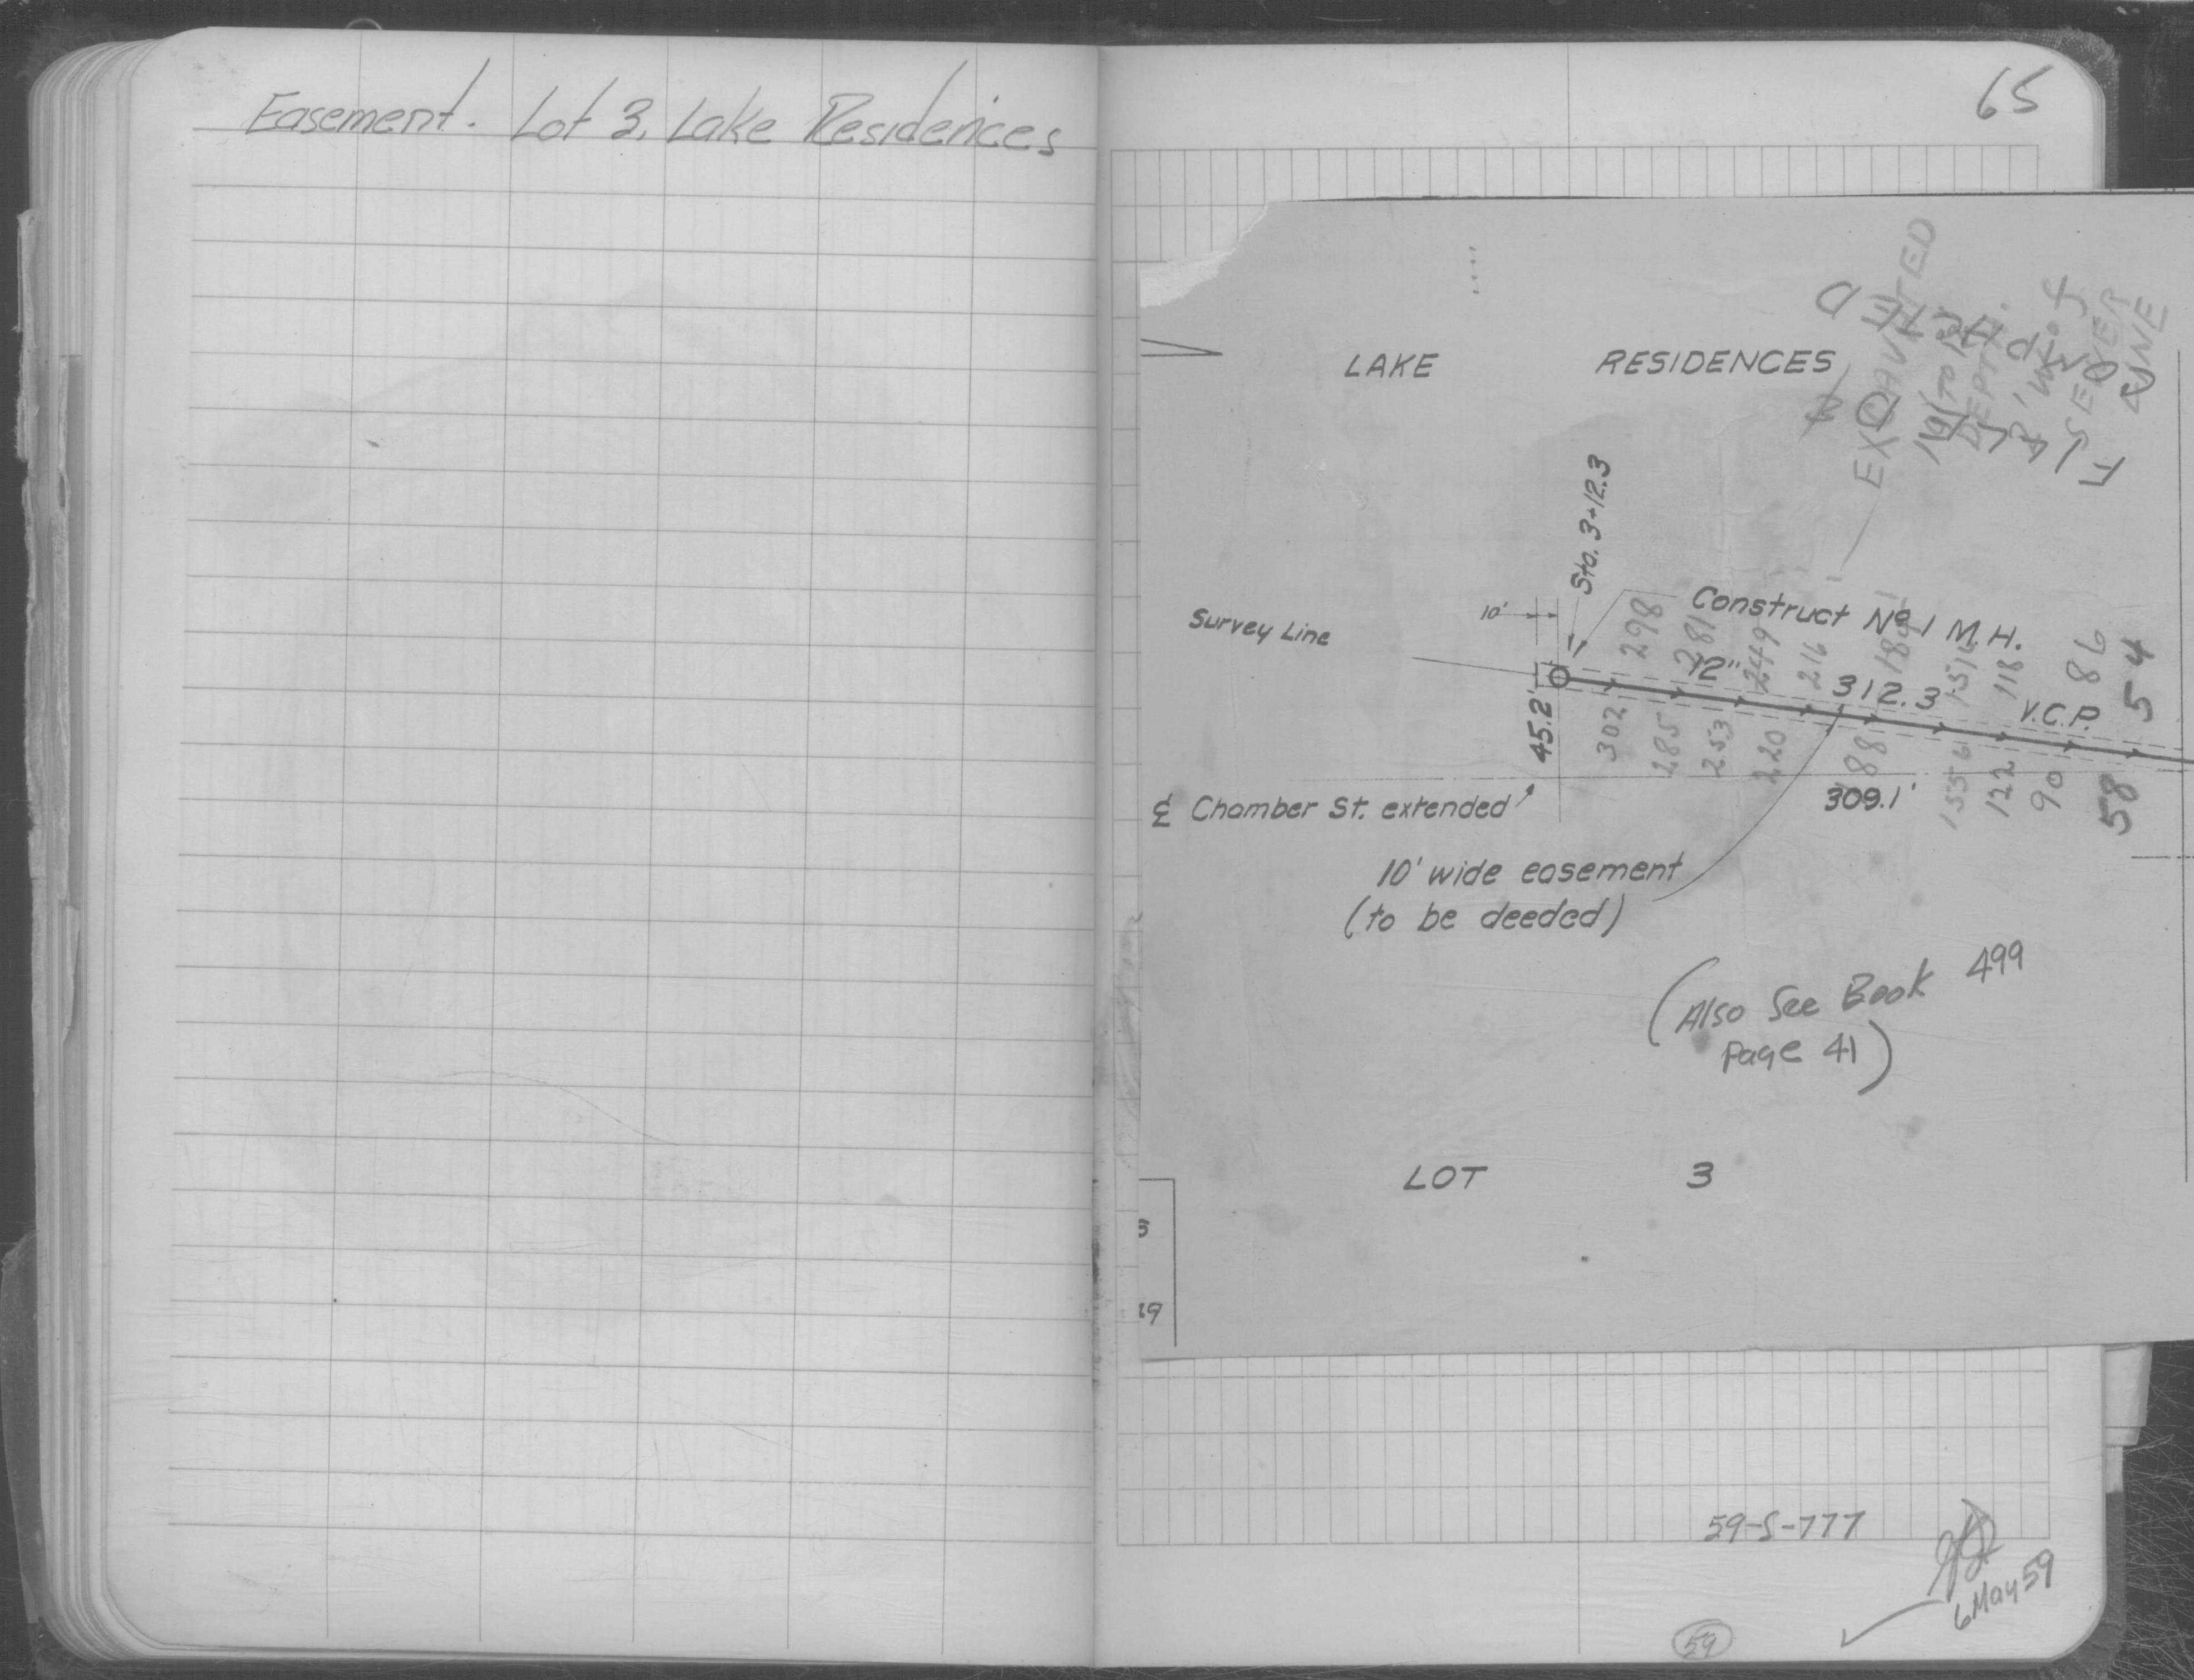 Easement. Lot 3, Lake Residences
65
LAKE RESIDENCES
EXCAVATED
TO
DEPTH.
8' W. of
SEWER
LINE
FILL
COMPACTED
Sta. 3+12.3
Survey Line
10'
Construct No 1 M.H.
298 281 249 216 184 151 118 86 54
12" 312.3 V.C.P.
45.2'
302 285 253 220 188 155 122 90 58
309.1'
℄ Chamber St. extended
10' wide easement
(to be deeded)
(Also See Book 499
Page 41)
LOT 3
19
59-S-777
6 May 59
59